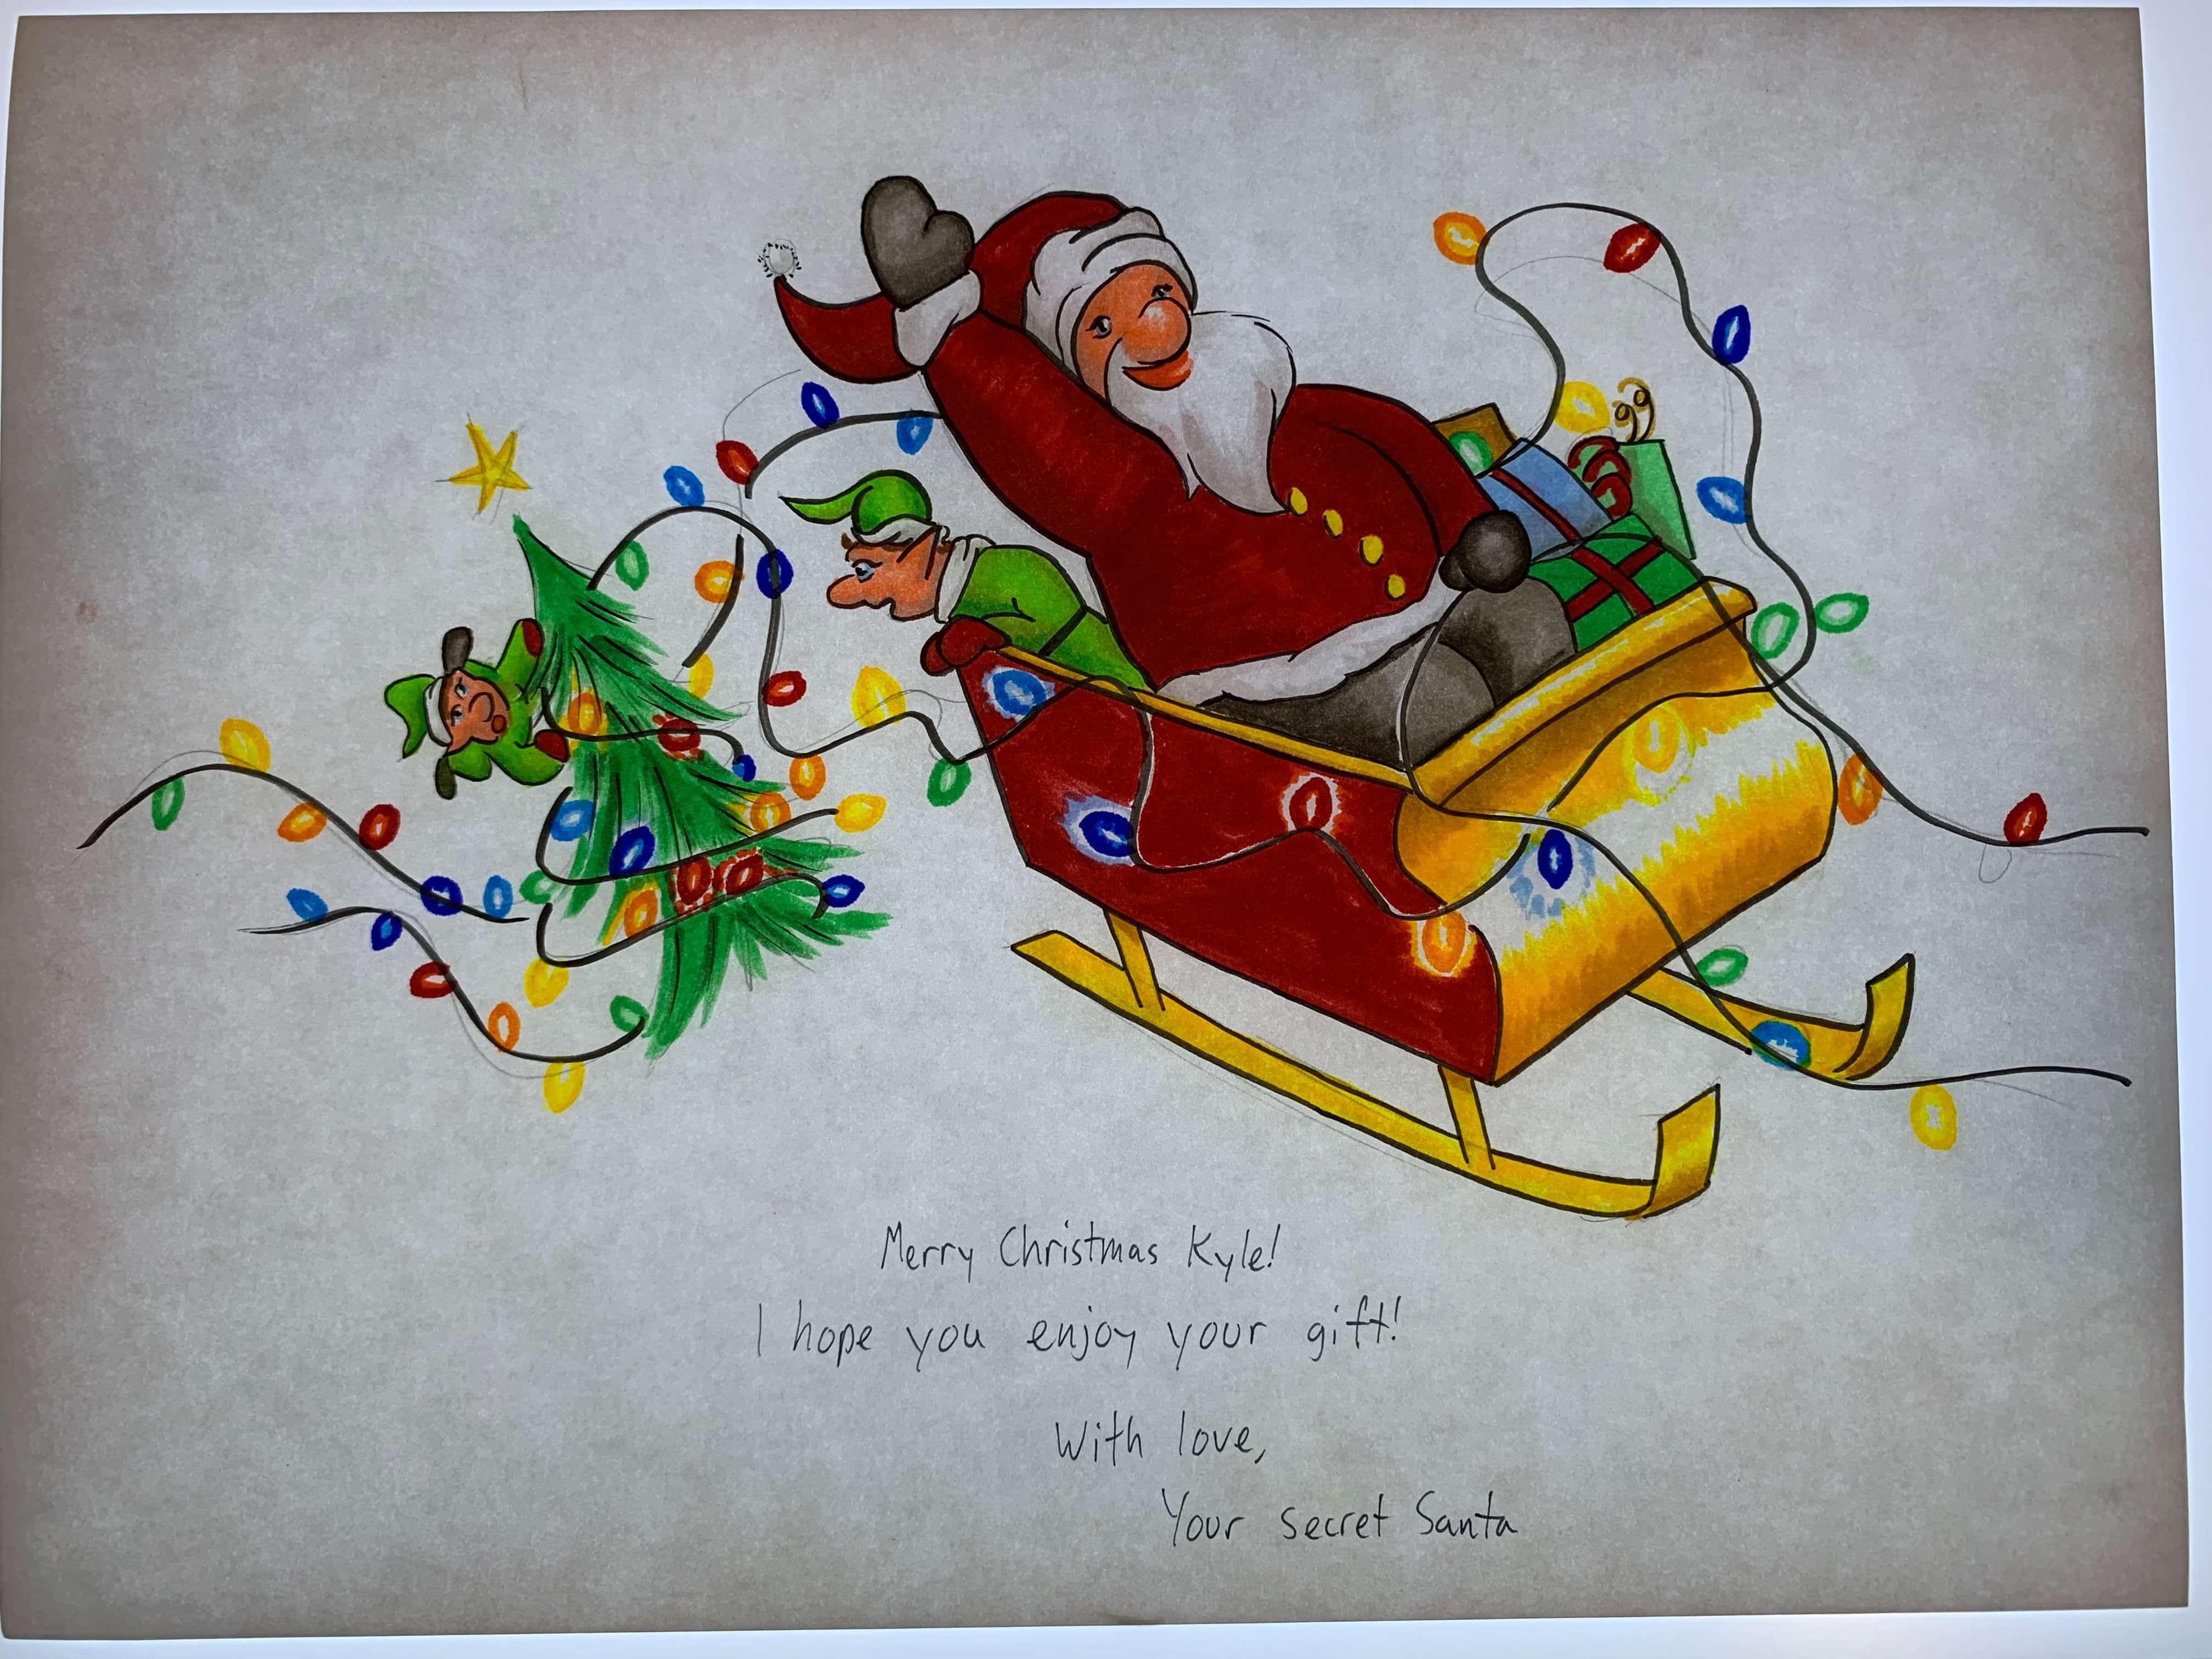 Merry Christmas Kyle!
I hope you enjoy your gift!
With love,
Your secret Santa